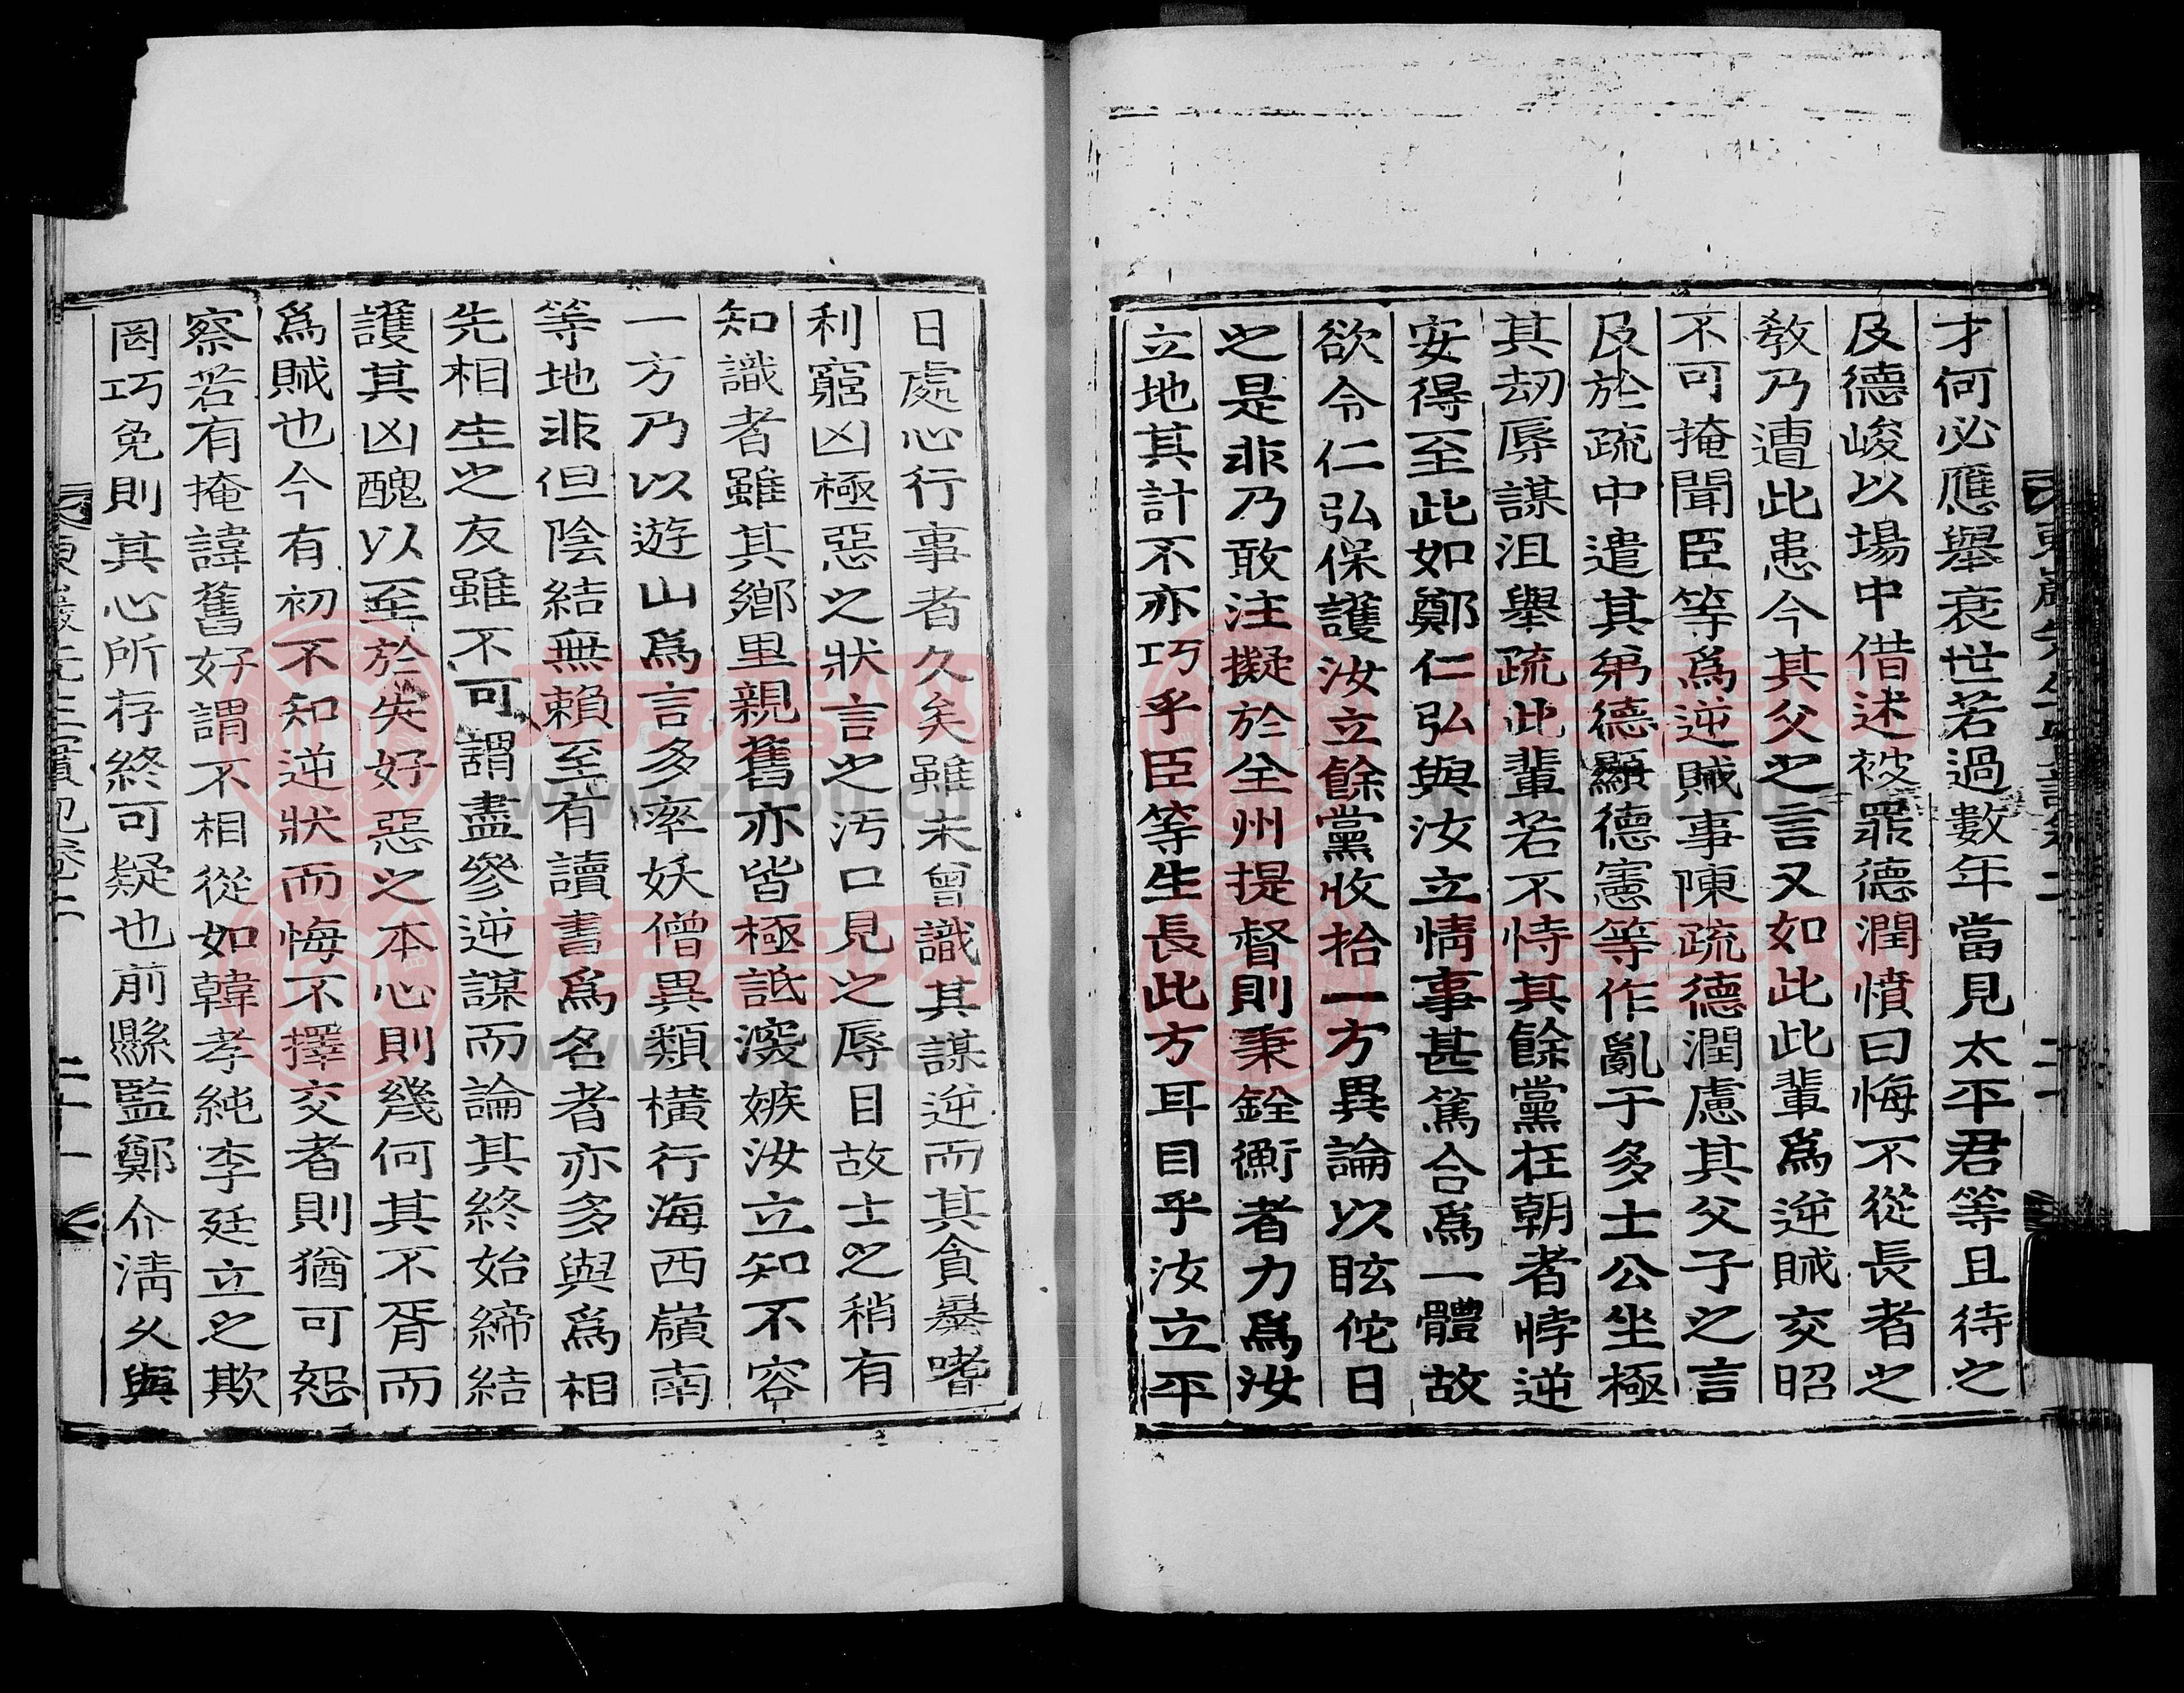 才何必應舉衰世若過數年當見太平君等且待之
及德峻以場中借述被罪德潤憤曰悔不從長者之
敎乃遭此患今其父之言又如此此輩爲逆賊交昭
不可掩聞臣等爲逆賊事陳疏德潤慮其父子之言
及於疏中遣其弟德顯德憲等作亂于多士公坐極
其刼辱謀沮舉疏此輩若不恃其餘黨在朝者悖逆
安得至此如鄭仁弘與汝立情事甚篤合爲一體故
欲令仁弘保護汝立餘黨收拾一方異論以眩佗日
之是非乃敢注擬於全州提督則秉銓衡者力爲汝
立地其計不亦巧乎臣等生長此方耳目乎汝立平
日處心行事者久矣雖未曾識其謀逆而其貪暴嗜
利窮凶極惡之狀言之汚口見之辱目故士之稍有
知識者雖其鄕里親舊亦皆極詆深嫉汝立知不容
一方乃以遊山爲言多率妖僧異類橫行海西嶺南
等地非但陰結無賴至有讀書爲名者亦多與爲相
先相生之友雖不可謂盡參逆謀而論其終始締結
護其凶醜以至於失好惡之本心則幾何其不胥而
爲賊也今有初不知逆狀而悔不擇交者則猶可恕
察若有掩諱舊好謂不相從如韓孝純李廷立之欺
罔巧免則其心所存終可疑也前縣監鄭介淸久與
二十一